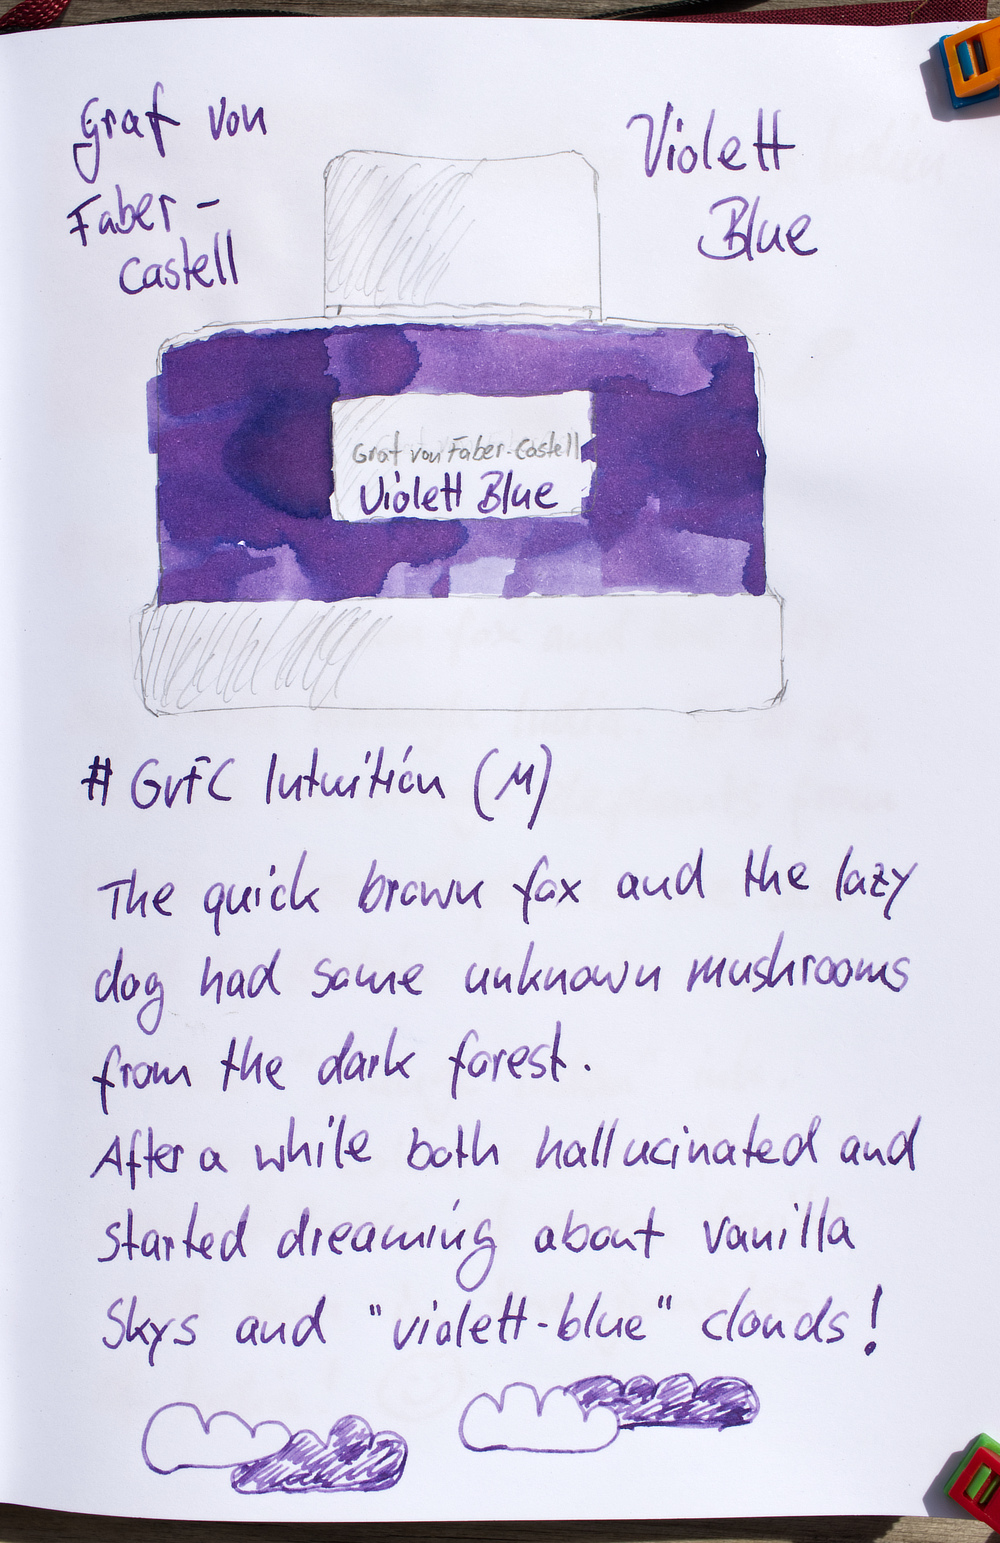 Graf von
Faber-
Castell
Violett
Blue
Graf von Faber-Castell
Violett Blue
# GvFC Intuition (M)
The quick brown fox and the lazy
dog had some unknown mushrooms
from the dark forest.
After a while both hallucinated and
started dreaming about vanilla
Skys and "violett-blue" clouds!